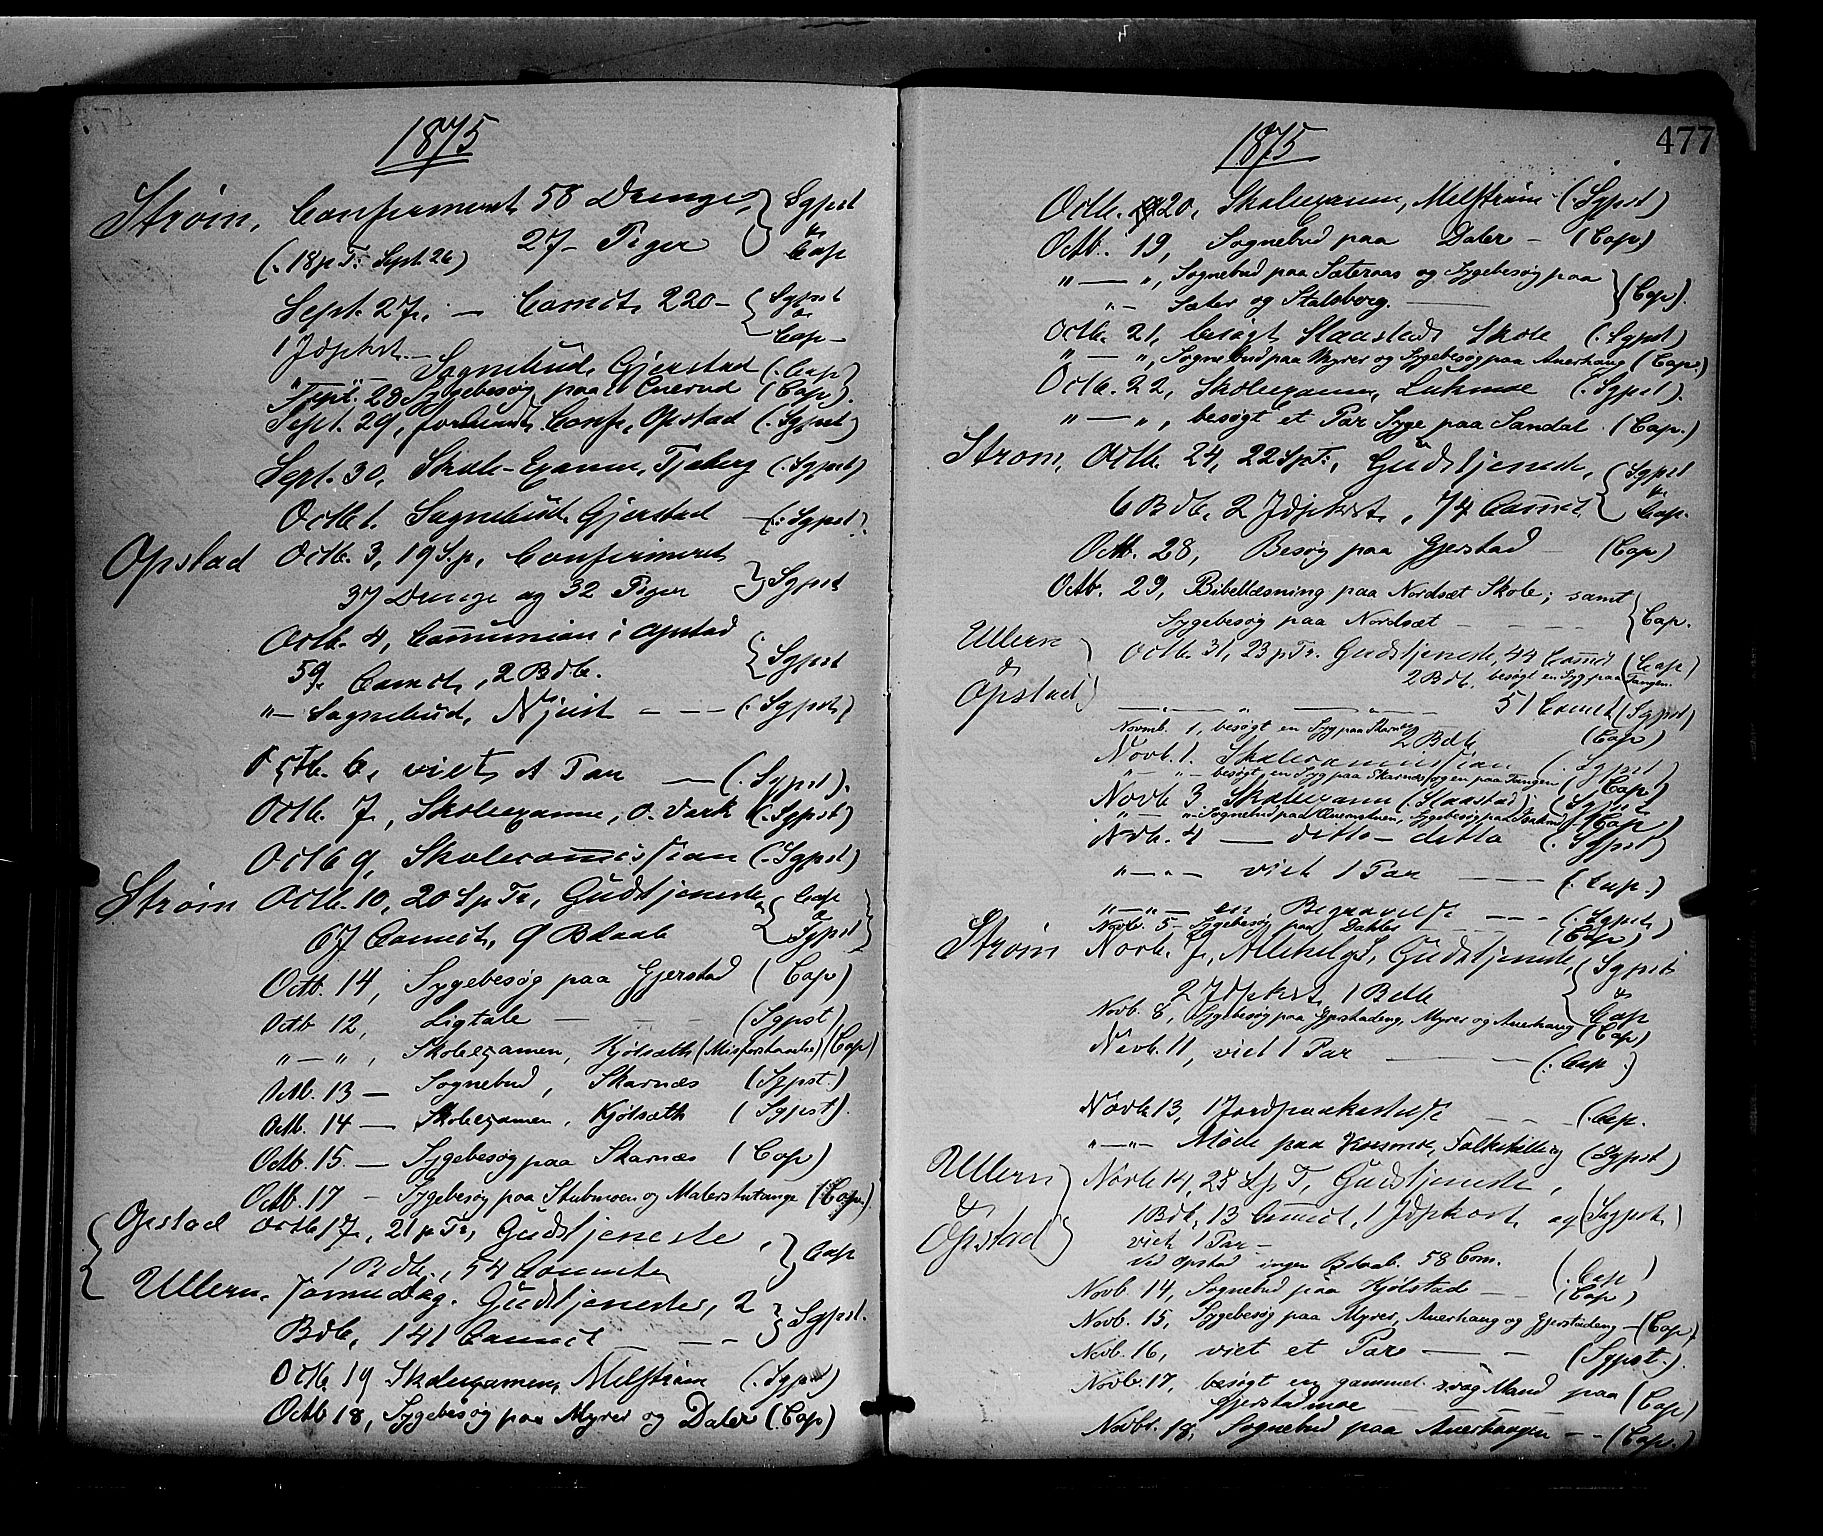 1875
Strøm, Confirmeret 58 Drenge, } Sgpst
(. 18 p Tr. Sept. 26) 27 - Piger & Cap
Sept. 27, - Comct, 220 - { Sgpst & Cap -
1 Jdpkst. - Sognebud, Gjerstad (. Cap)
Sept. 28 Sygebesøg paa (Cap).
Sept. 29, Conf, Opstad (. Sgpst)
Sept. 30, Skole-Examen, Tjaberg (. Sgpst)
Octb 1. Sognebud, Gjerstad - (: Sgpst).
Opstad Octb. 3, 19 S.p, Confirmeret
37 Drenge og 32 Piger } Sgpst
Octb. 4, Communion i Opstad
59 Comct, 2 Bdb. { Sgpst
"- Sognebud, Njust - - - (. Sgpst,)
Octb. 6, viet et Par - (. Sgpst).
Octb. 7, Skoleexamen, O. Værk (. Sgpst)
Octb 9, Skolecommission (. Sgpst)
Strøm Octb. 10, 20 S p Tr, Gudstjeneste, { Cap & Sgpst }
67 Comct, 9 Bdaab
Octb. 14, Sygebesøg paa Gjerstad (Cap)
Octb 12, Ligtale - - - (Sgpst)
" - ", Skoleexamen, Kjølsæth (Misforstaaelse) (Cap)
Octb. 13 - Sognebud, Skarnæs (Sgpst.)
Octb. 14 - Skoleexamen, Kjølsæth (Sgpst).
Octb. 15. - Sygebesøg paa Skarnæs (Cap)
Octb. 17 - Sygebesøg paa Stubmoen og Malerstutange (Cap.)
Opstad Octb 17, 21 p Tr, Gudstjeneste,
1 Bdb., 54 Comct } Cap
Ullern. samme Dag. Gudstjeneste, 2
Bdb, 141 Comct - - } Sgpst.
Octb. 19 Skoleexamen, Melstrøm (. Sgpst)
Octb 18, Sygebesøg paa Myrer og Daler (Cap)
1875
477
Octb. 20, Skoleexamen, Melstrøm (Sgpst)
Octb. 19, Sognebud paa Daler - (Cap)
" - ", Sognebud paa Sæteraas og Sygebesøg paa
" - Sæter og Stalsberg. } (Cap).
Octb. 21, besøgt Slaastads Skole (. Sgpst)
" - ", Sognebud paa Myrer og Sygebesøg paa Auerhaug (Cap)
Octb. 22, Skoleexamen, Lukmoe (. Sgpst).
" - ", besøgt et Par Syge paa Sandal. (Cap.)
Strøm, Octb. 24, 22 S p Tr, Gudstjeneste, { Sgpst & Cap.
6 Bdb, 2 Jdpkst, 74 Comct.
Octb. 28, Besøg paa Gjerstad - (Cap)
Octb. 29, Bibellæsning paa Nordsæt Skole; samt
Sygebesøg paa Nordsæt - - - { Cap.
Ullern & Opstad Octb. 31, 23 p Tr. Gudstjeneste, 44 Comct (Cap)
2 Bdb, besøgt en Syg paa Tangen.
51 Comct (Sgpst)
Novemb. 1, besøgt en Syg paa Skarnæs (Cap)
2 Bdb
Novb. 1. Skolecommission (. Sgpst)
" - " - besøgt en Syg paa Skarnæs og en paa Tangen (Cap)
Novb 3. Skoleexamen (Slaastad). (Sgpst)
" - " - Sognebud paa Sygebesøg paa (Cap)
Nvb. 4 - ditto - ditto (. Sgpst)
" - " - viet 1 Par - (. Cap.)
" - " - en Begravelse - - - (. Sgpst)
Novb. 5 - Sygebesøg paa Dahler (Cap)
Strøm Novb. 7, Allehelgf, Gudstjeneste, { Sgpst & Cap
2 Jdpkst, 1 Bdb
Novb. 8, Sygebesøg paa Gjerstadeng, Myrer og Auerhaug (Cap)
Novb. 11, viet 1 Par - (. Cap.)
Novb 13, 1 Jordpaakastelse - - (. Cap.
" - " - Møde paa Korsmoe, (Sgpst)
Ullern & Opstad Novb 14, 25 S p T, Gudstjeneste,
1 Bdb, 13 Comct, 1 Jdpkast, og (Sgpst.)
viet 1 Par -
ved Opstad ingen Bdaab. 58 Com. (. Cap)
Novb. 14, Sognebud paa Kjølstad - - (Cap)
Novb. 15, Sygebesøg paa Myrer, Auerhaug og Gjerstadeng - (Cap)
Novb. 16, viet et Par - - (Sgpst.).
Novb. 17, besøgt en gammel svag Mand paa
Gjerstadmoe - - - (Cap)
Novbr. 18, Sognebud paa Auerhaugen - - (Cap.)